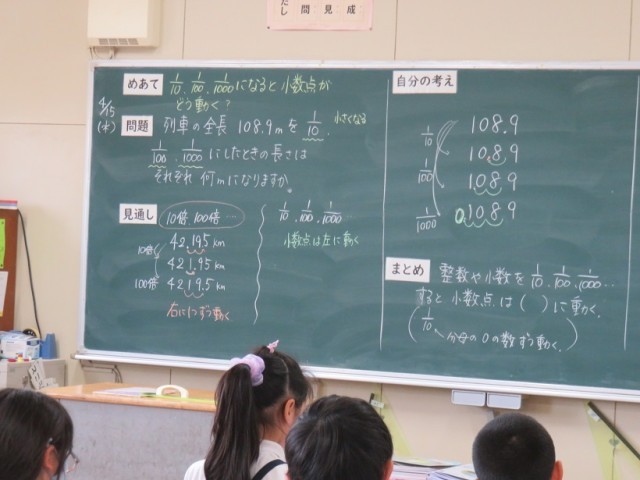 だし 間 見 成
4/15
(水)
めあて 1/10、1/100、1/1000になると小数点が
どう動く？
問題 列車の全長 108.9mを1/10、小さくなる
1/100、1/1000にしたときの長さは
それぞれ何mになりますか。
見通し 10倍、100倍…
10倍 42.195km
421.95km
100倍 4219.5km
右に1つずつ動く
1/10、1/100、1/1000…
小数点は左に動く
自分の考え
108.9
1/10 108.9
1/100 108.9
1/1000 0.108.9
まとめ 整数や小数を1/10、1/100、1/1000…
すると小数点は( )に動く。
(1/10 分母の0の数ずつ動く。)